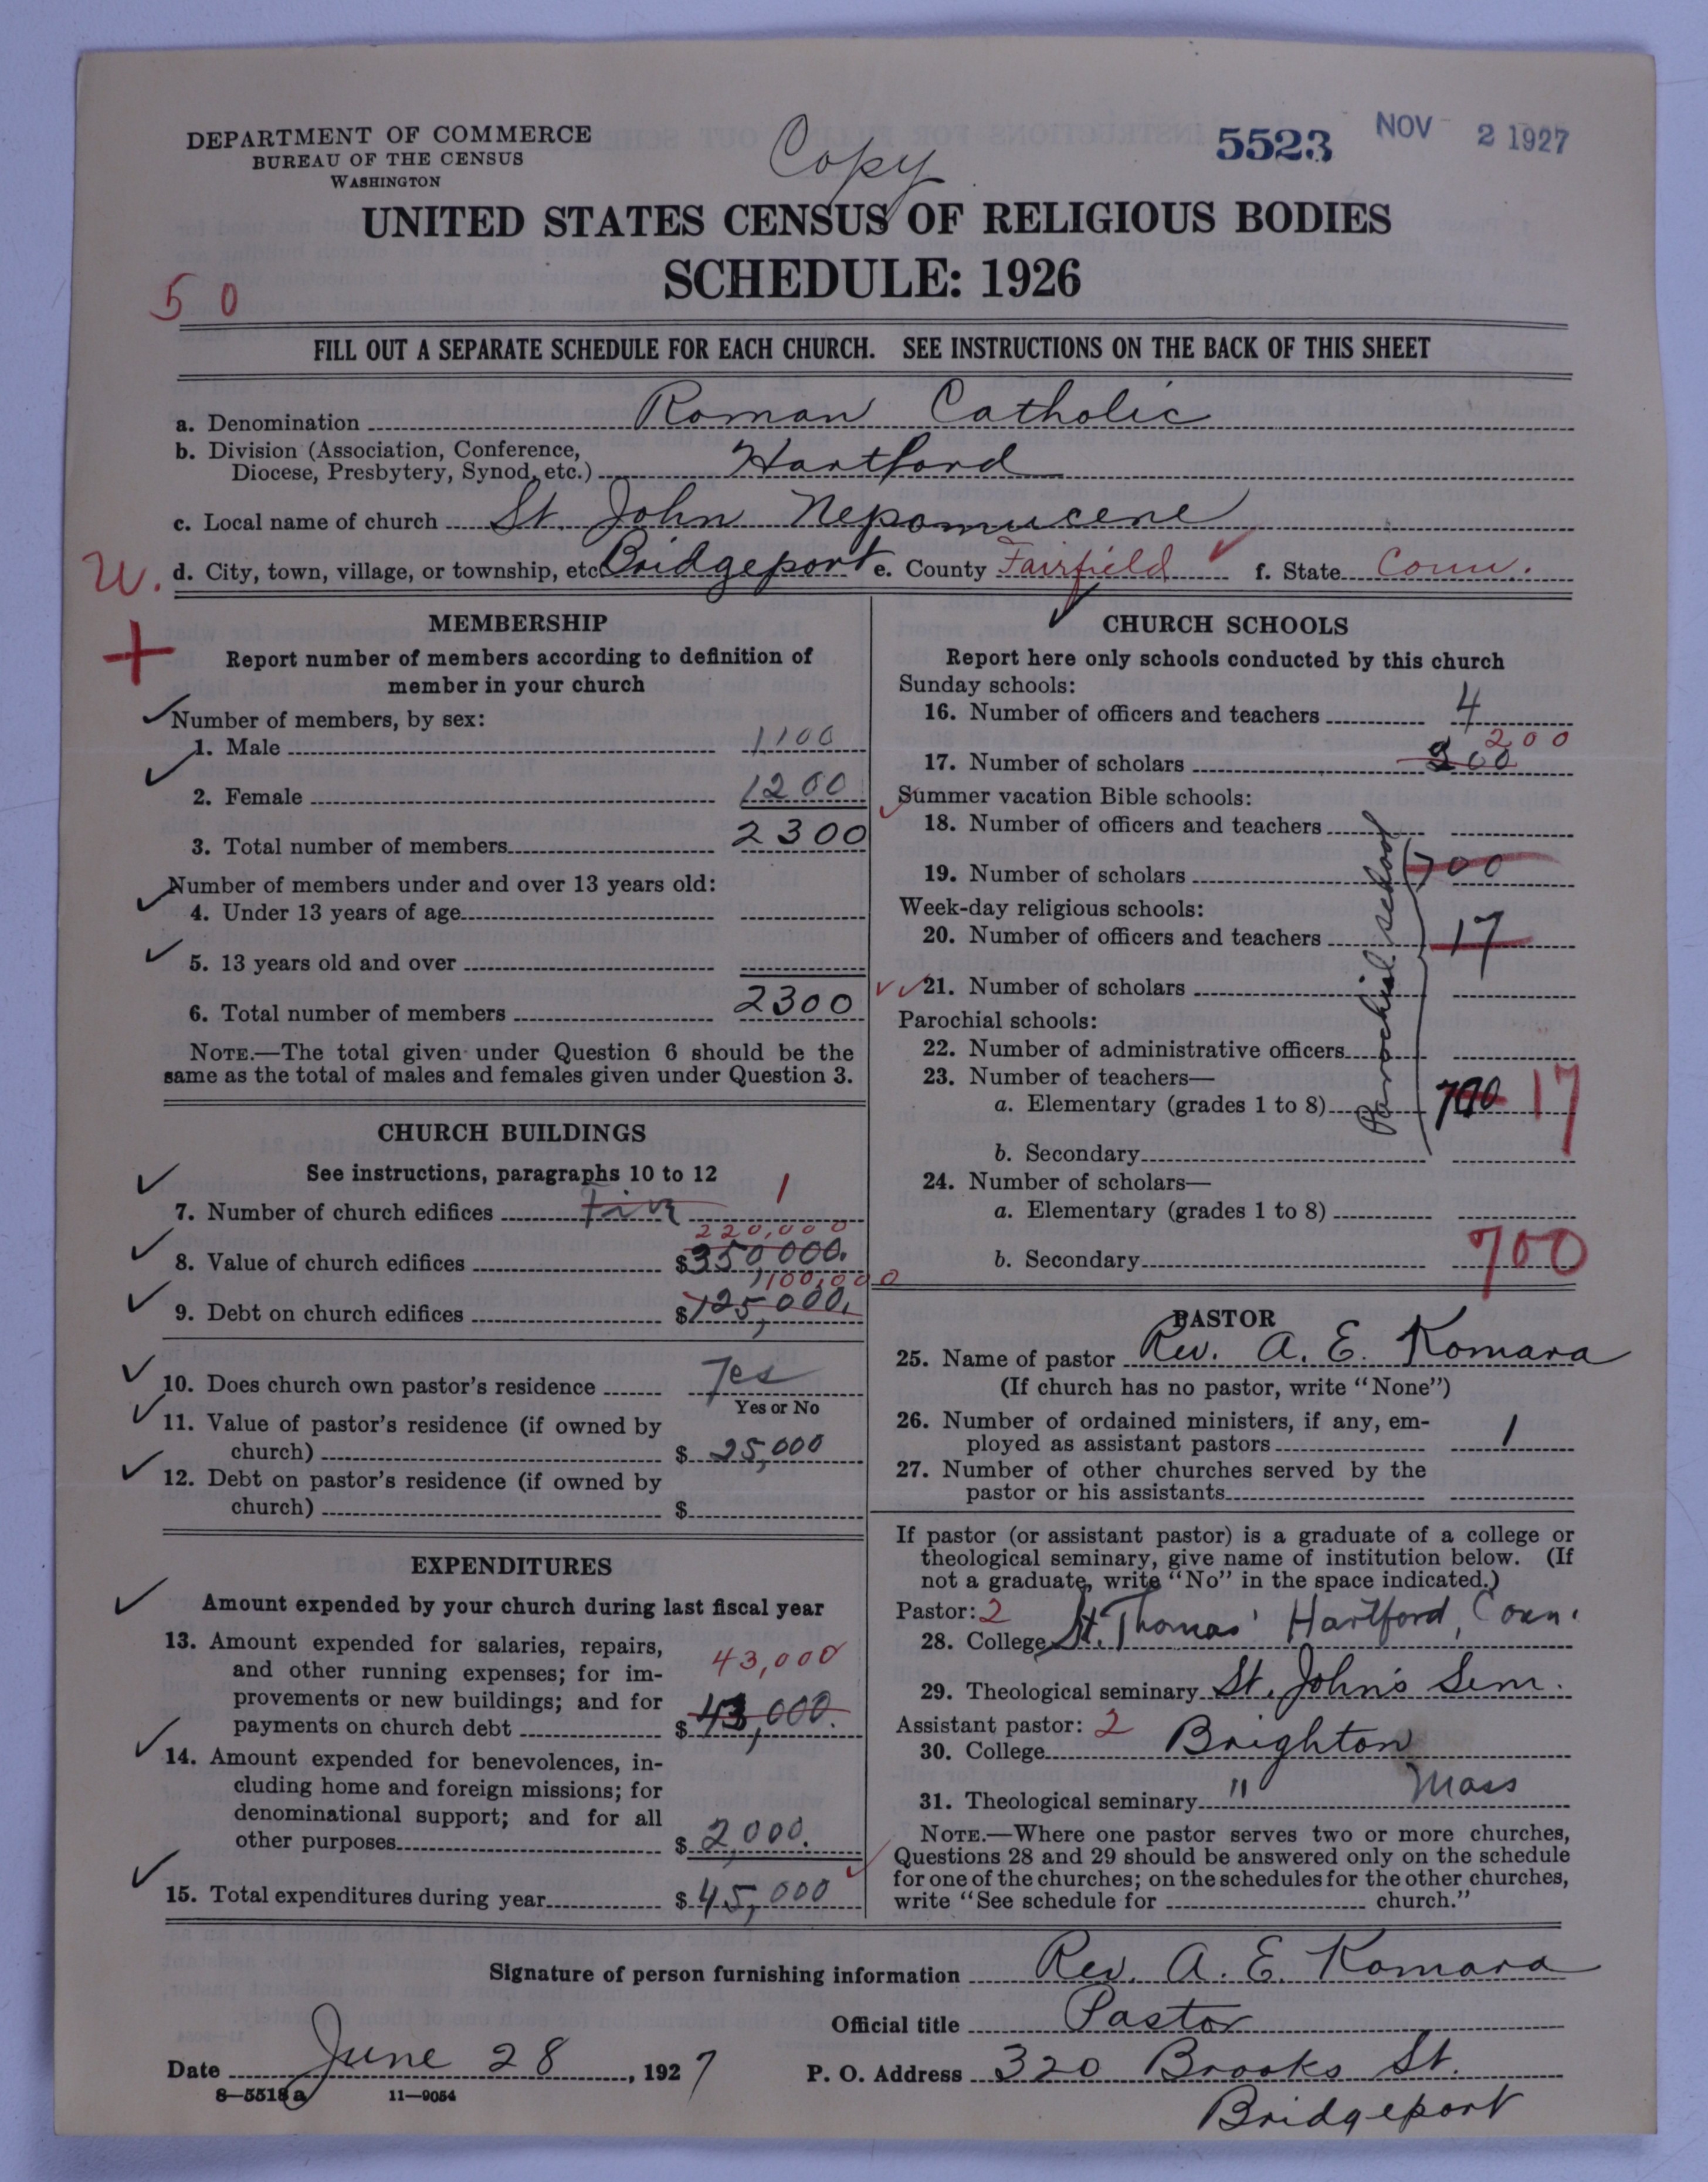 DEPARTMENT OF COMMERCE
BUREAU OF THE CENSUS
WASHINGTON
Copy
5523
NOV 2 1927
UNITED STATES CENSUS OF RELIGIOUS BODIES
SCHEDULE: 1926
50
FILL OUT A SEPARATE SCHEDULE FOR EACH CHURCH. SEE INSTRUCTIONS ON THE BACK OF THIS SHEET
a. Denomination Roman Catholic
b. Division (Association, Conference,
Diocese, Presbytery, Synod, etc.) Hartford
c. Local name of church St. John Nepomucene
U. d. City, town, village, or township, etc. Bridgeport e. County Fairfield f. State Conn.
MEMBERSHIP
Report number of members according to definition of
member in your church
Number of members, by sex:
1. Male 1100
2. Female 1200
3. Total number of members 2300
Number of members under and over 13 years old:
4. Under 13 years of age
5. 13 years old and over
6. Total number of members 2300
NOTE.—The total given under Question 6 should be the
same as the total of males and females given under Question 3.
CHURCH BUILDINGS
See instructions, paragraphs 10 to 12
7. Number of church edifices Five 1
220,000
8. Value of church edifices $350,000.
100,000
9. Debt on church edifices $125,000.
10. Does church own pastor's residence Yes
Yes or No
11. Value of pastor's residence (if owned by
church) $25,000
12. Debt on pastor's residence (if owned by
church) $
EXPENDITURES
Amount expended by your church during last fiscal year
13. Amount expended for salaries, repairs,
and other running expenses; for im-
43,000
provements or new buildings; and for
payments on church debt $43,000.
14. Amount expended for benevolences, in-
cluding home and foreign missions; for
denominational support; and for all
other purposes $2,000.
15. Total expenditures during year $45,000
CHURCH SCHOOLS
Report here only schools conducted by this church
Sunday schools:
16. Number of officers and teachers 4
200
17. Number of scholars 200
Summer vacation Bible schools:
18. Number of officers and teachers
19. Number of scholars 700
Week-day religious schools:
20. Number of officers and teachers 17
21. Number of scholars
Parochial school
Parochial schools:
22. Number of administrative officers
23. Number of teachers—
a. Elementary (grades 1 to 8) 700 17
b. Secondary
24. Number of scholars—
a. Elementary (grades 1 to 8)
b. Secondary 700
PASTOR
25. Name of pastor Rev. A. E. Komara
(If church has no pastor, write "None")
26. Number of ordained ministers, if any, em-
ployed as assistant pastors 1
27. Number of other churches served by the
pastor or his assistants
If pastor (or assistant pastor) is a graduate of a college or
theological seminary, give name of institution below. (If
not a graduate, write "No" in the space indicated.)
Pastor: 2
28. College St. Thomas' Hartford, Conn.
29. Theological seminary St. John's Sem.
Assistant pastor: 2
30. College Brighton
31. Theological seminary " Mass
NOTE.—Where one pastor serves two or more churches,
Questions 28 and 29 should be answered only on the schedule
for one of the churches; on the schedules for the other churches,
write "See schedule for church."
Signature of person furnishing information Rev. A. E. Komara
Official title Pastor
Date June 28, 1927
P. O. Address 320 Brooks St.
Bridgeport
8—5518a 11—9054